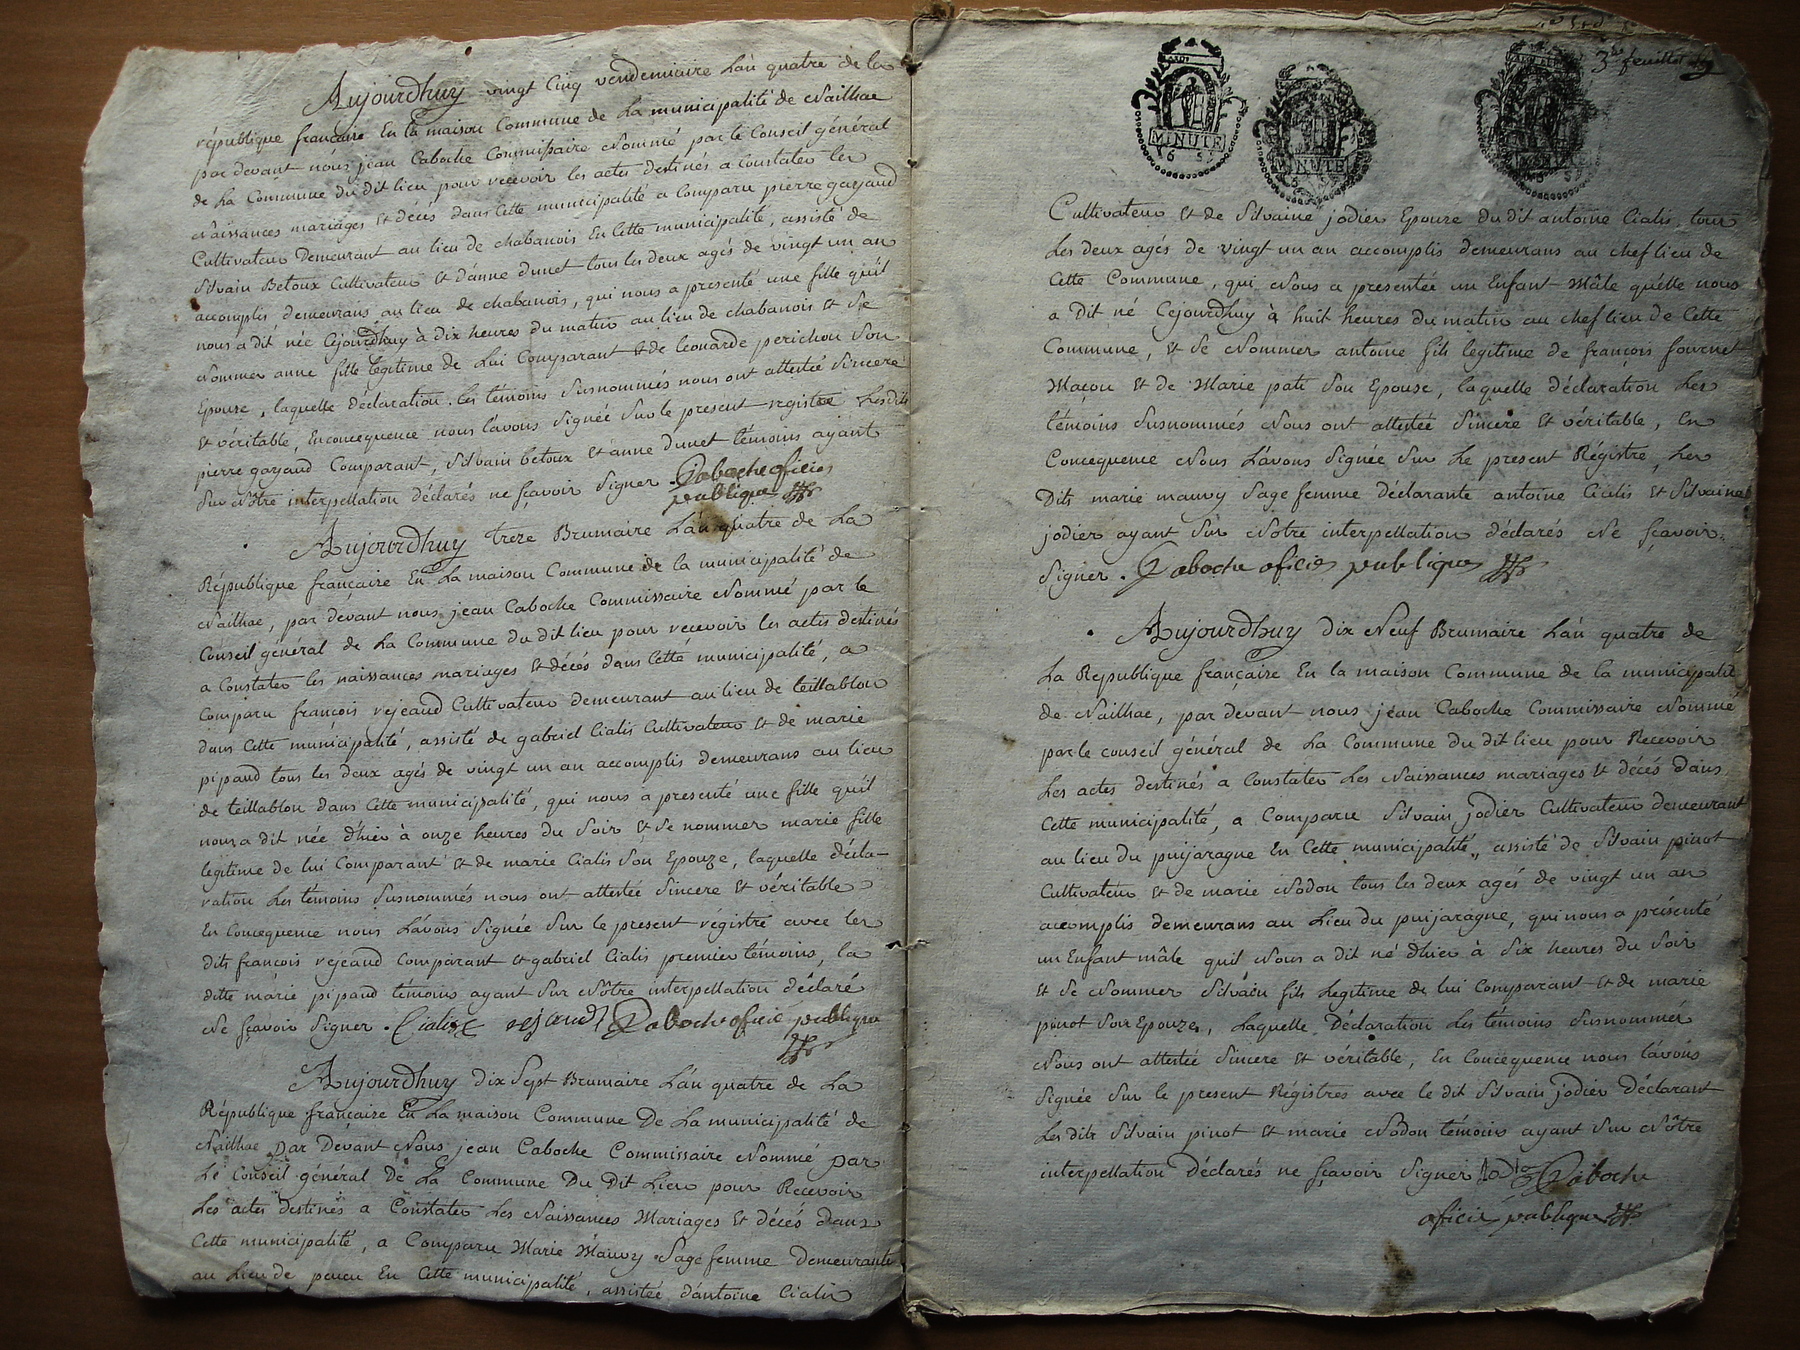 Aujourdhuy vingt Cinq vendemiaire L'an quatre de la
république françaire En la maison Commune de La municipalité de Nailhac
par devant nous jean Caboche Commissaire Nommé par le Conseil général
de La Commune du dit lieu pour recevoir les actes destinés a Constater les
Naissances mariages Et décés dans Cette municipalité a Comparu pierre gayaud
Cultivateur Demeurant au lieu de chabanois En Cette municipalité, assisté de
Silvain Betoux Cultivateur Et d'anne dunet tous les deux agés de vingt un an
accomplis demeurans au lieu de chabanois, qui nous a presenté une fille qu'il
nous a dit née Cejourdhuy à dix heures du matin au lieu de chabanois Et se
Nommer anne fille legitime de Lui Comparant Et de leonarde perichon son
Epouse, laquelle déclaration les témoins susnommés nous ont attestée sincere
Et véritable, En concequence nous l'avons signée sur le present registre Les dits
pierre gayaud Comparant, silvain betoux Et anne dunet témoins ayant
sur Nôtre interpellation déclarés ne sçavoir signer . Caboche oficier
publique
Aujourdhuy treze Brumaire L'an quatre de La
République françaire En La maison Commune de la municipalité de
Nailhac, par devant nous jean Caboche Commissaire Nommé par le
Conseil général de La Commune du dit lieu pour recevoir les actes destinés
a Constater les naissances mariages Et décés dans Cette municipalité, a
Comparu françois rejeaud Cultivateur demeurant au lieu de teillablou
dans Cette municipalité, assisté de gabriel Cialis Cultivateur Et de marie
pipaud tous les deux agés de vingt un an accomplis demeurans au lieu
de teillablou dans Cette municipalité, qui nous a presenté une fille qu'il
nous a dit née d'hier à onze heures du soir Et se nommer marie fille
legitime de lui Comparant Et de marie Cialis son Epouze, laquelle décla-
ration Les témoins susnommés nous ont attestée sincere Et véritable
En Concequence nous L'avons signée sur le present régistre avec les
dits françois rejeaud Comparant Et gabriel Cialis premier témoins, la
ditte marie pipaud témoins ayant sur Nôtre interpellation déclaré
Ne sçavoir signer . Cialis rejaud Caboche oficie publique
Aujourdhuy dix sept Brumaire L'an quatre de La
République françaire En La maison Commune De La municipalité de
Nailhac par Devant Nous jean Caboche Commissaire Nommé par
Le Conseil général De La Commune Du Dit Lieu pour Recevoir
Les actes destinés a Constater Les Naissances Mariages Et décés dans
Cette municipalité, a Comparu Marie Mauvy sage femme demeurante
au Lieu de En Cette municipalité, assistée d'antoine Cialis
3e feuillet
MINUTE
MINUTE
MINUTE
Cultivateur Et de Silvaine jodier Epouze du dit antoine Cialis, tous
Les deux agés de vingt un an accomplis demeurans au chef lieu de
Cette Commune, qui Nous a presentée un Enfant Mâle qu'elle nous
a Dit né Cejourdhuy à huit heures du matin au chef lieu de Cette
Commune, Et se Nommer antoine fils legitime de françois fournet
Maçon Et de Marie pati son Epouse, laquelle déclaration Les
témoins susnommés Nous ont attestée sincere Et véritable, En
Concequence Nous L'avons signée sur Le present Régistre, Les
Dits marie mauvy sage femme déclarante antoine Cialis Et Silvaine
jodier ayant sur Nôtre interpellation déclarés Ne sçavoir
Signer . Caboche oficie publique
Aujourdhuy dix Neuf Brumaire L'an quatre de
La Republique françaire En la maison Commune de la municipalité
de Nailhac, par devant nous jean Caboche Commissaire Nommé
par le conseil général de La Commune du dit lieu pour Recevoir
Les actes destinés a Constater Les Naissances mariages Et décés dans
Cette municipalité, a Comparu Silvain jodier Cultivateur demeurant
au lieu du puijaragne En Cette municipalité, assisté de Silvain pinot
Cultivateur Et de marie Nodon tous les deux agés de vingt un an
accomplis demeurans au Lieu du puijaragne, qui nous a présenté
un Enfant mâle qu'il Nous a dit né d'hier à six heures du soir
Et se Nommer Silvain fils Legitime de lui Comparant Et de marie
pinot son Epouze, Laquelle Déclaration Les témoins susnommés
Nous ont attestée sincere Et véritable, En Concequence nous l'avons
signée sur le present Régistres avec le dit Silvain jodier déclarant
Les dits Silvain pinot Et marie Nodon témoins ayant sur Nôtre
interpellation déclarés ne sçavoir signer Caboche
oficie publique